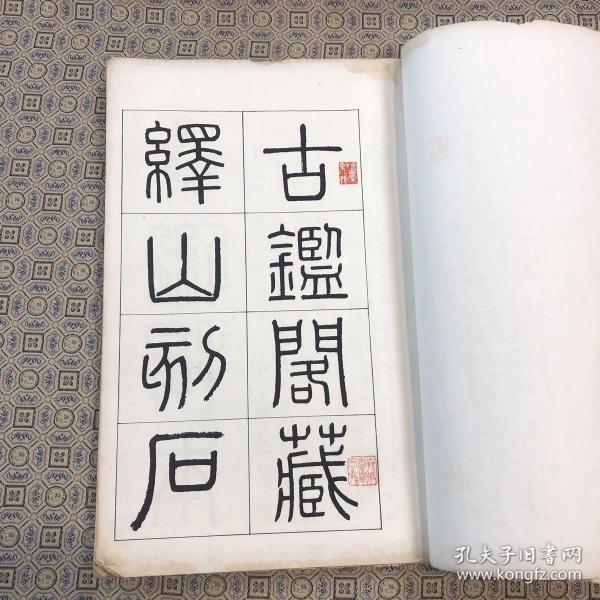 古鑑閣藏
繹山刻石
孔夫子旧书网
www.kongfz.com